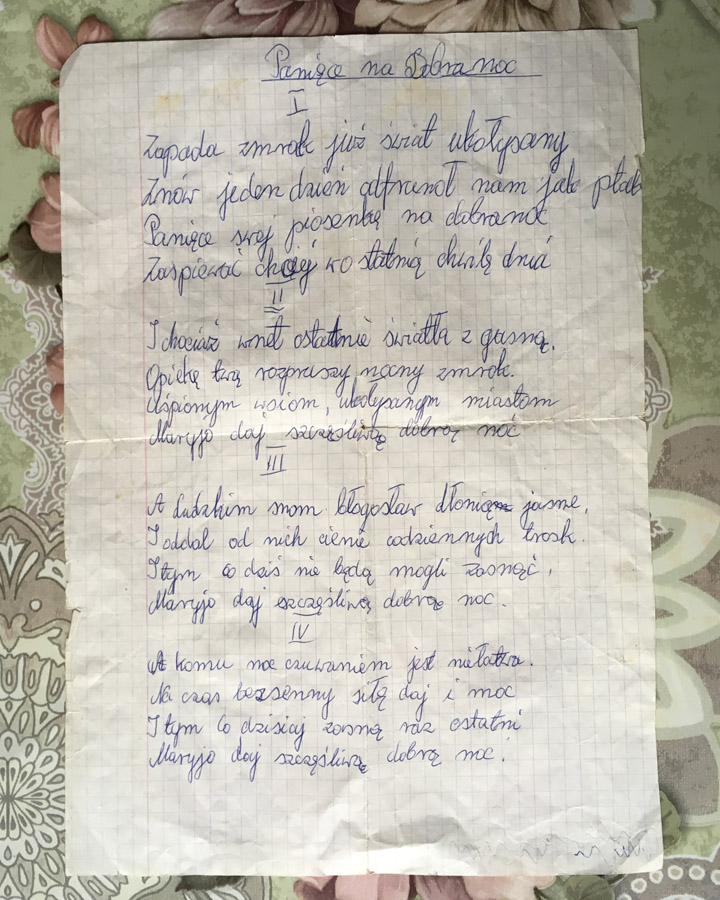 Panięce na Dobranoc
I
Zapada zmrok już świat ukołysany
Znów jeden dzień odfrunoł nam jak ptak
Panięce swej piosenkę na dobranoc
Zaspiewać chcęj wo statnią chwilę dnia
II
I chociaż wnet ostatnie światła z gasną.
Opiekę twą rozpruszy nocny zmrok.
Uspionym wsiom, ukołysanym miastom
Maryjo daj szczęśliwą dobrą noc
III
A ludzkim snom błogosław dłonią jasne,
I oddal od nich cienie codziennych trosk.
I tym co dziś nie będą mogli zasnąć,
Maryjo daj szczęśliwą dobrą noc.
IV
A komu noc czuwaniem jest niełatwa.
Na czas bezsenny siłę daj i moc
I tym co dzisiaj zasną raz ostatni
Maryjo daj szczęśliwą dobrą noc.